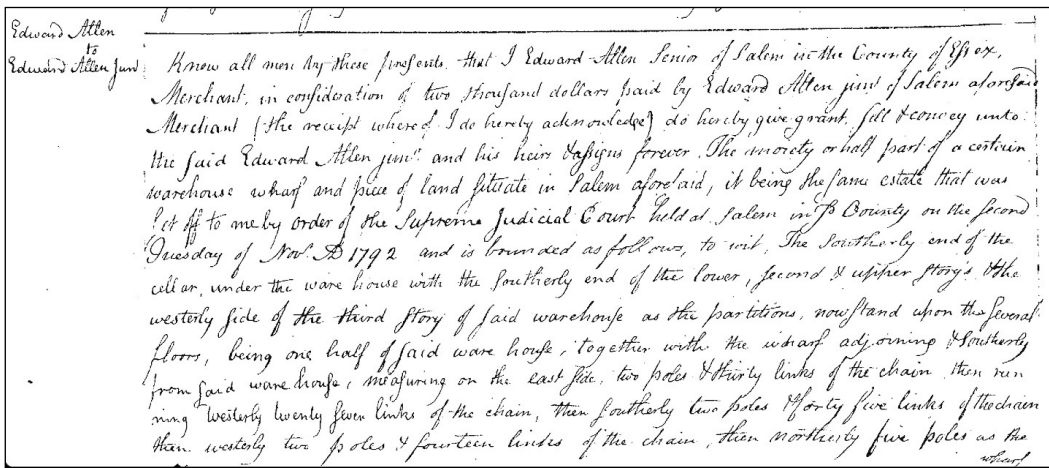 Edward Allen
to
Edward Allen Jun
Know all men by these presents, that I Edward Allen Senior of Salem in the County of Essex,
Merchant, in consideration of two thousand dollars paid by Edward Allen junr of Salem aforesaid
Merchant (the receipt whereof I do hereby acknowledge) do hereby give grant, sell & convey unto
the said Edward Allen junr and his heirs & assigns forever. The moiety or half part of a certain
warehouse wharf and piece of land situate in Salem aforesaid, it being the same estate that was
set off to me by order of the Supreme Judicial Court held at Salem in County on the second
Tuesday of Nov. AD 1792 and is bounded as follows, to wit, The Southerly end of the
cellar, under the ware house with the Southerly end of the lower, second & upper storys & the
westerly side of the third story of said warehouse as the partitions, now stand upon the several
floors, being one half of said ware house, together with the wharf adjoining & Southerly
from said ware house, measuring on the east side, two poles & thirty links of the chain then run
ning Westerly twenty seven links of the chain, then Southerly two poles & forty five links of the chain
then westerly two poles & fourteen links of the chain, then northerly five poles as the
wharf